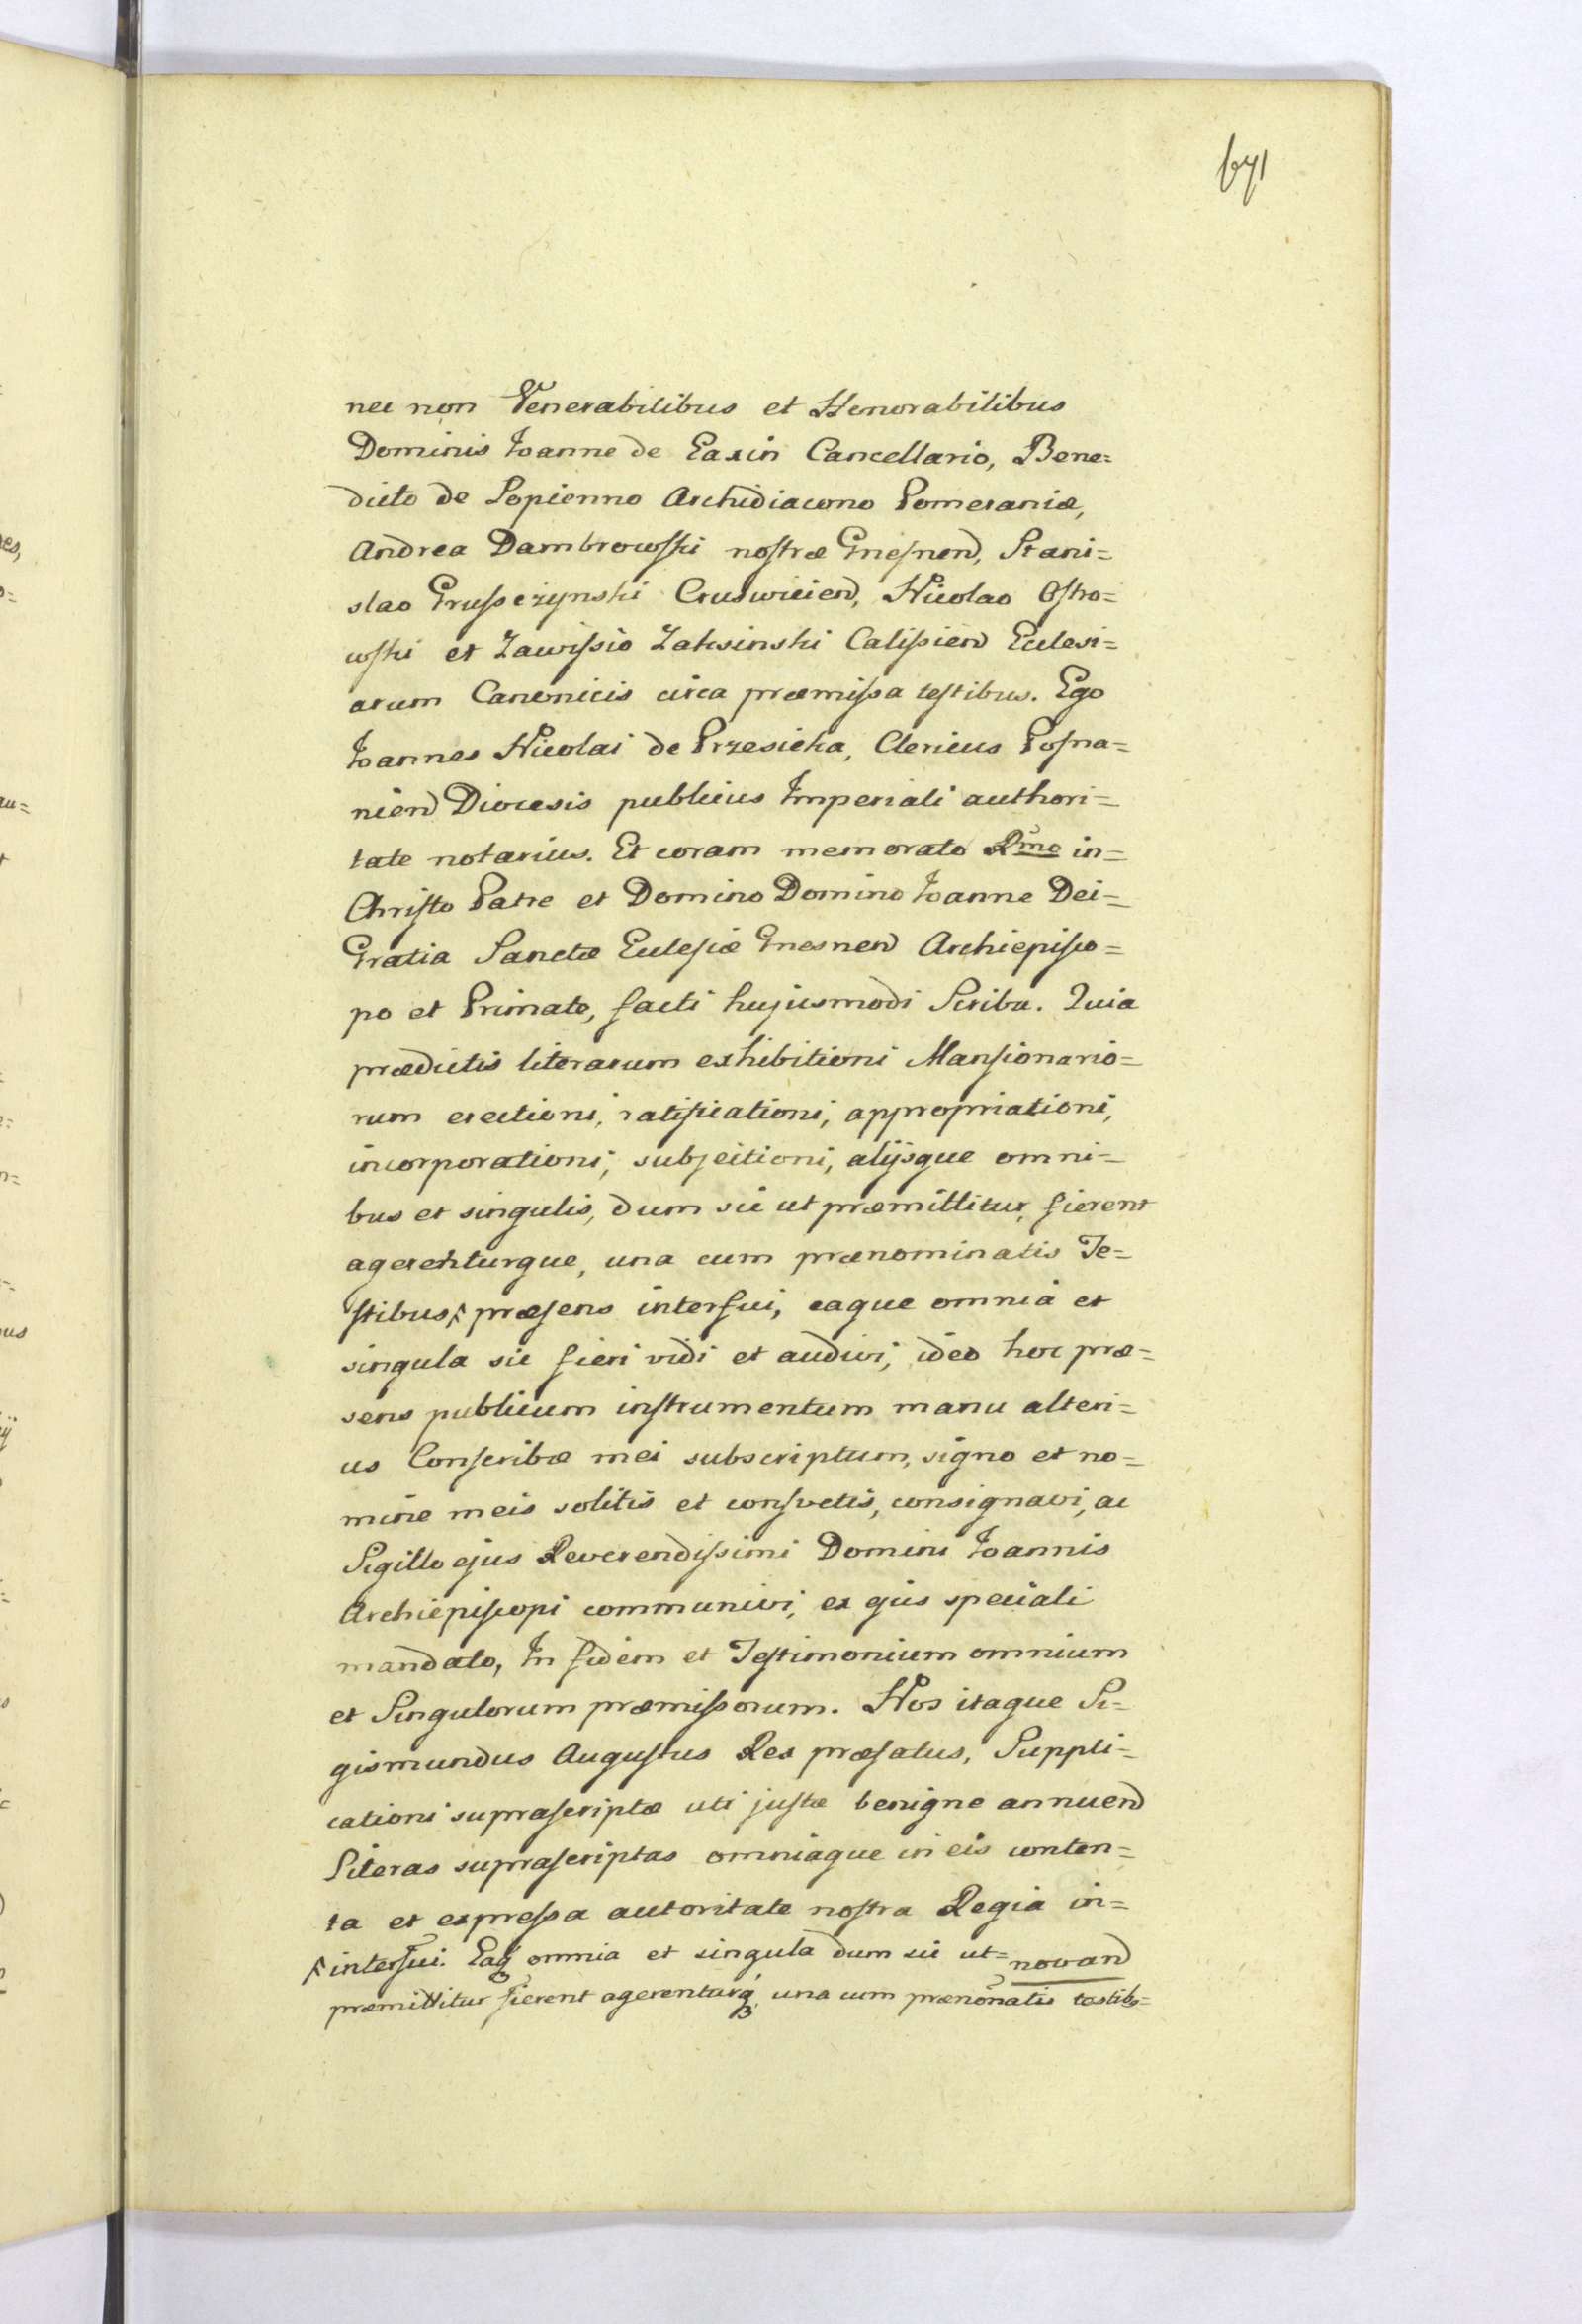 671
nec non Venerabilibus et Honorabilibus
Dominis Joanne de Exin Cancellario, Bene=
dicto de Lopienno Archidiacono Pomeraniæ,
Andrea Dambrowſki noſtræ Gneſnen, Stani=
slao Gruſzczynski Cruswicien, Nicolao Oſtro=
wſki et Zawiſsio Zakrinski Caliſsien Eccleſi=
arum Canonicis circa præmiſsa teſtibus. Ego
Joannes Nicolai de Przesieka, Clericus Poſna=
nien Diocesis publicus Imperiali authori=
tate notarius. Et coram memorato Rmo in=
Chriſto Patre et Domino Domino Joanne Dei=
Gratia Sanctæ Eccleſiæ Gnesnen Archiepiſco=
po et Primate, facti hujusmodi Scriba. Quia
prædictis literarum exhibitioni Manſionario=
rum erectioni, ratificationi, appropriationi,
incorporationi, subjectioni, alijsque omni=
bus et singulis, dum sic ut præmittitur, fierent
agerenturque, una cum prænominatis Te=
ſtibus, præſens interfui, eaque omnia et
singula sic fieri vidi et audivi, ideo hoc præ=
sens publicum inſtrumentum manu alteri=
us Conſcribæ mei subscriptum, signo et no=
mine meis solitis et conſvetis, consignavi, ac
Sigillo ejus Reverendiſsimi Domini Joannis
Archiepiſcopi communivi, ex ejus speciali
mandato, In fidem et Teſtimonium omnium
et Singulorum præmiſsorum. Nos itaque Si=
gismundus Auguſtus Rex præfatus, Suppli=
cationi supraſcriptæ uti juſtæ benigne annuend
Literas supraſcriptas omniaque in eis conten=
ta et expreſsa autoritate noſtra Regia in=
novand
interfui. Eaq omnia et singula dum sic ut=
præmittitur fierent agerenturq una cum prænonatis testibs=